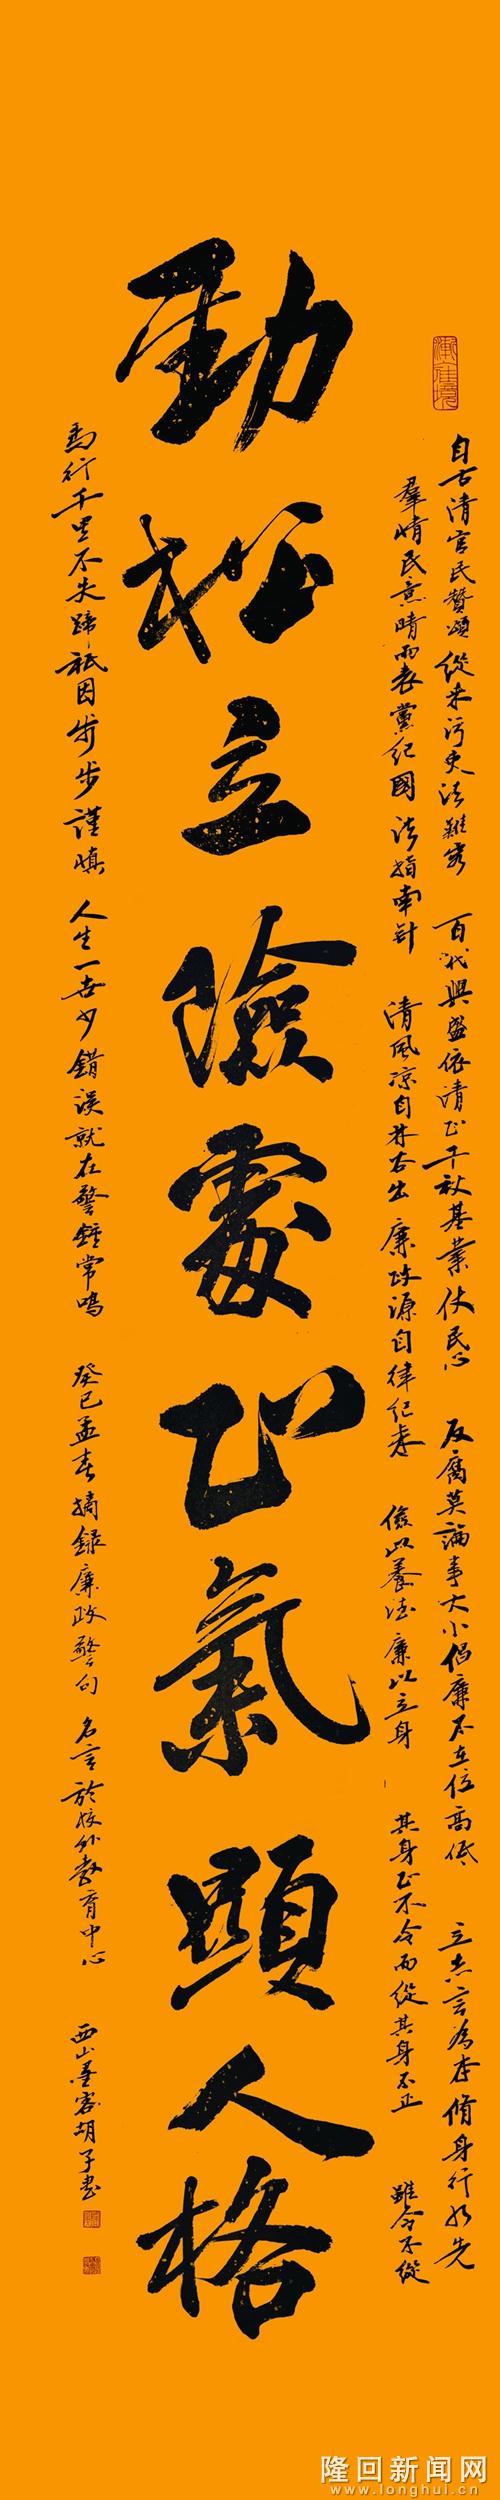 自古清官民贊頌 從來污吏法難容 百代興盛依清正 千秋基業仗民心 反腐莫論事大小 倡廉不在位高低 立志言為本 脩身行乃先
羣情民意晴雨表 黨紀國法指南針 清風涼自林谷出 廉政源自律紀走 儉以養德 廉以立身 其身正不令而從 其身不正 雖令不從
勁松立險處正氣頭人格
馬行千里不失蹄 祇因步步謹慎 人生一世少錯誤 就在警鐘常鳴 癸巳孟春 摘録廉政警句 名言於校外教育中心 西山墨客胡子書
隆回新闻网
www.longhui.cn